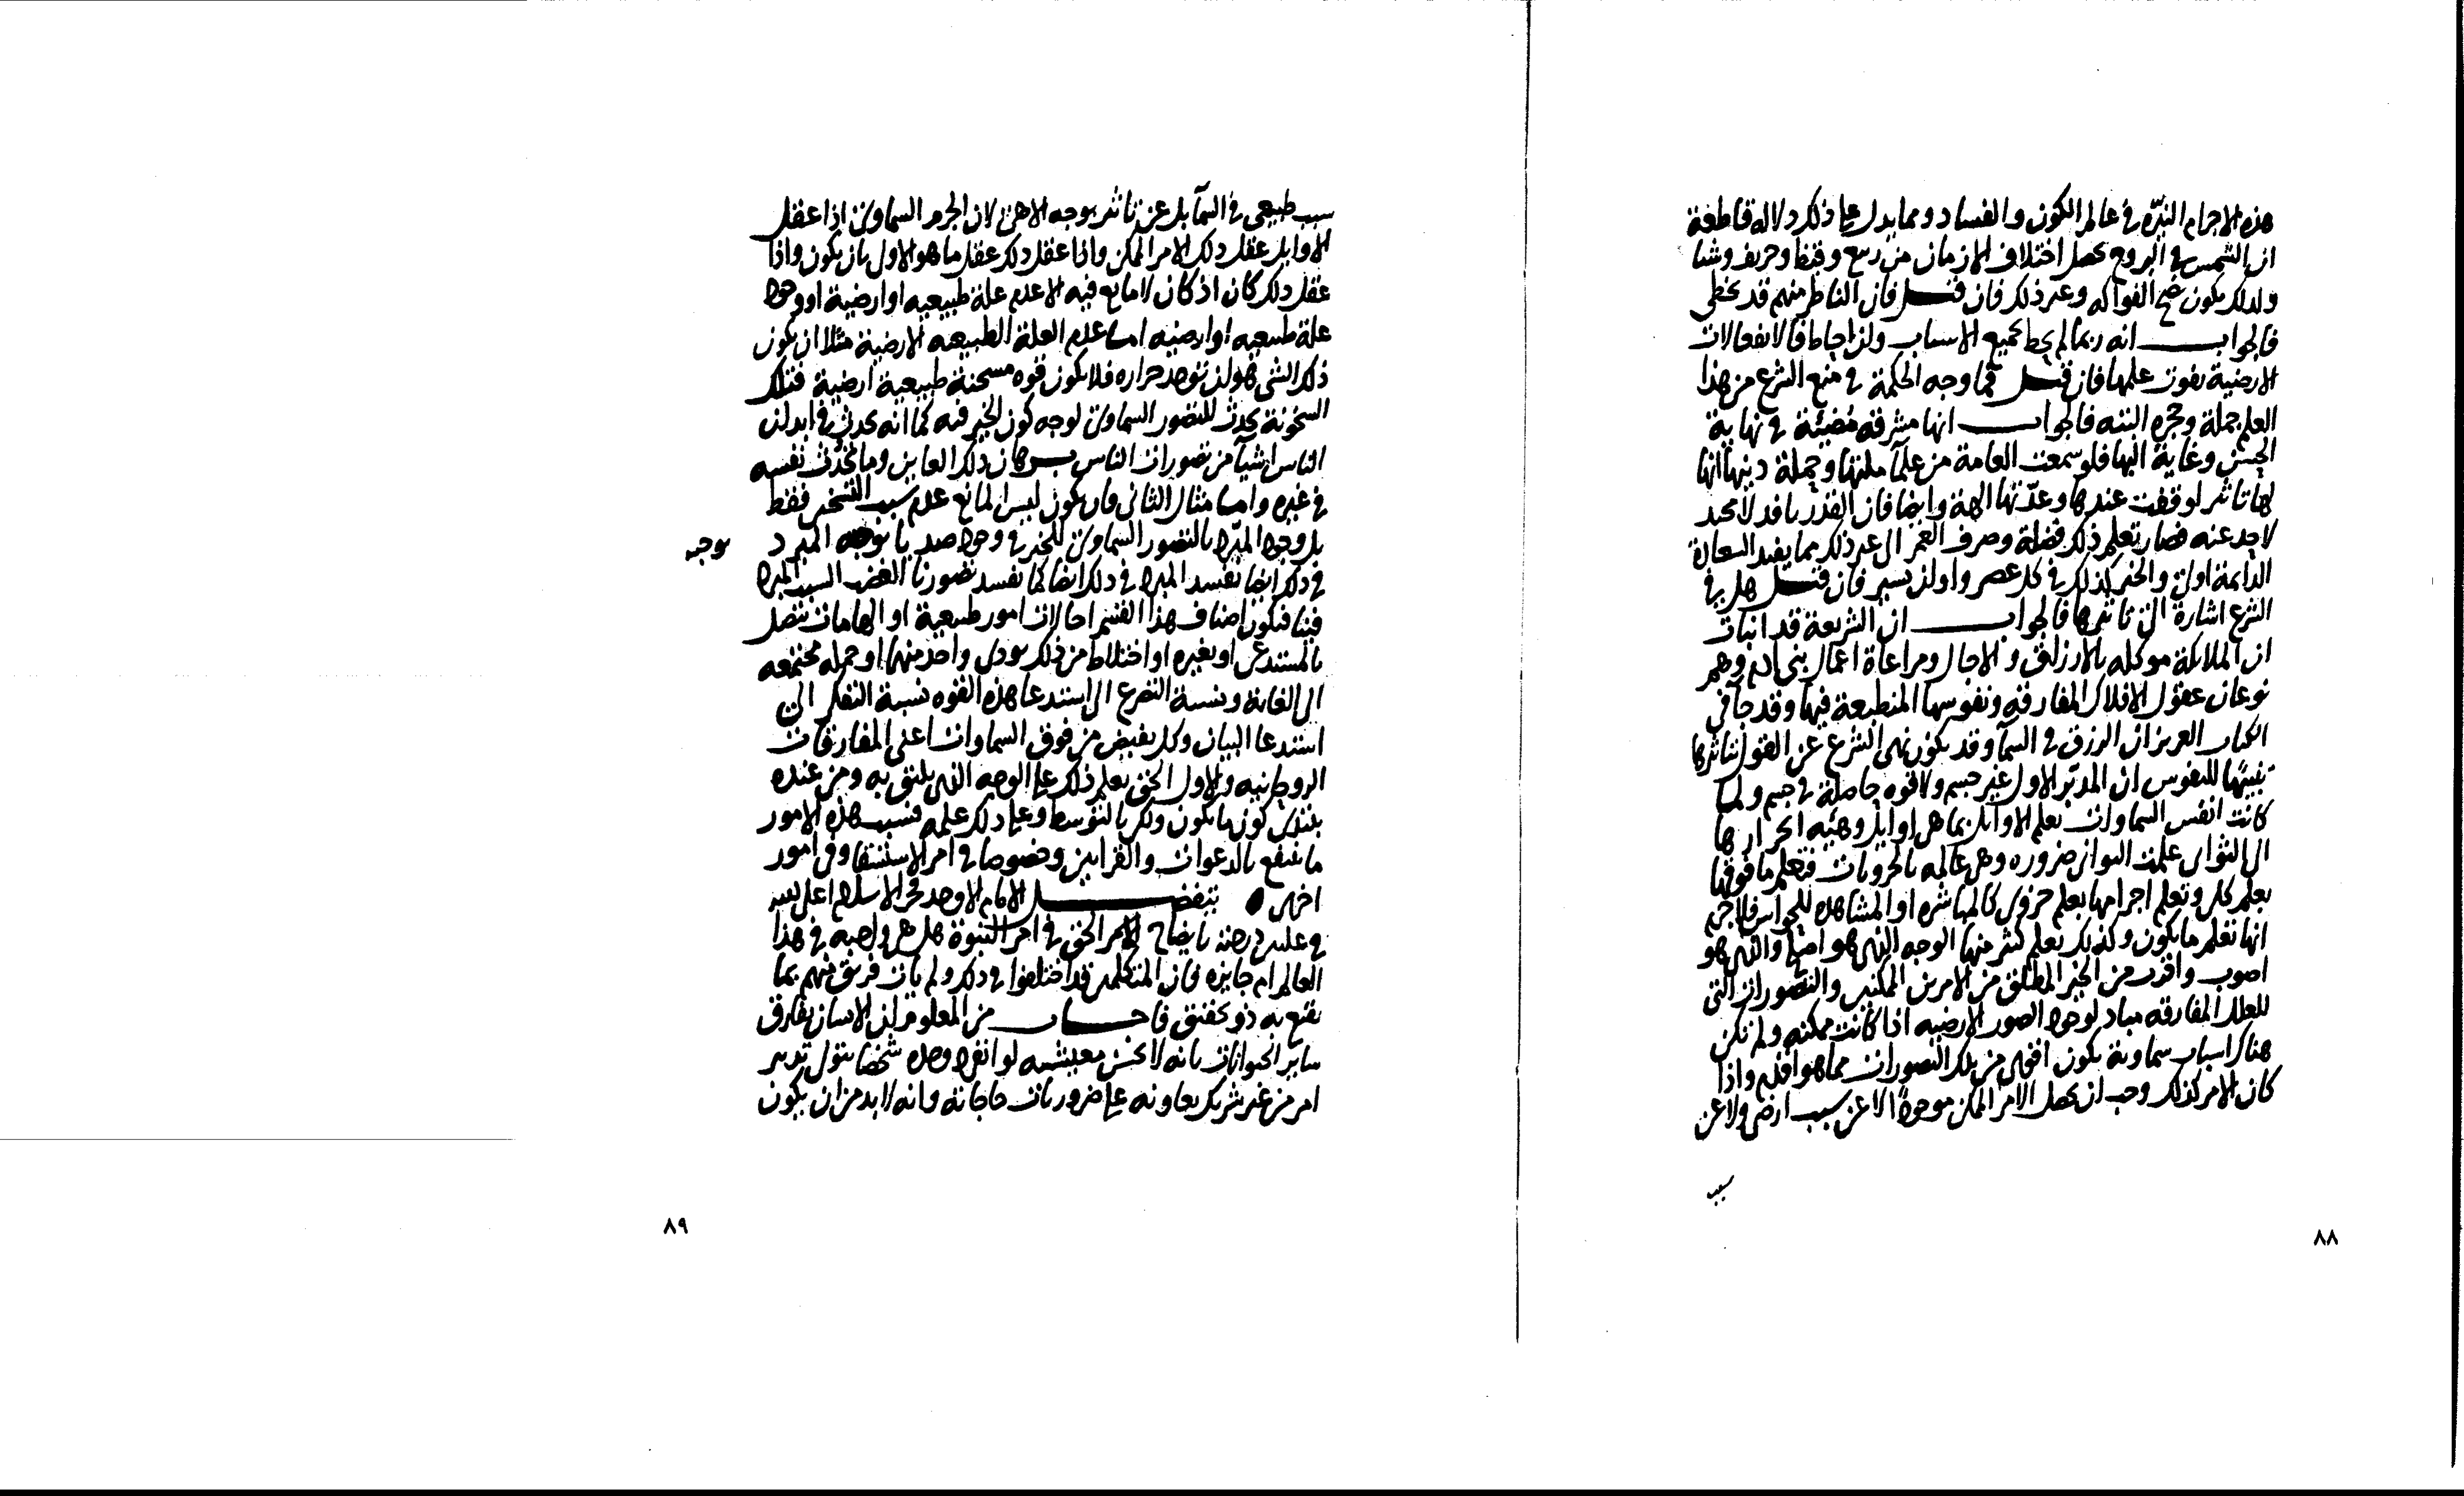 هذه الاجرام النيّرة في عالم الكون والفساد ومما يدل على ذلك دلاله قاطعة
ان الشمس في البروج يحصل اختلاف الازمان من ربيع وقيظ وخريف وشتا
ولذلك يكون نضج الفواكه وغير ذلك فان قيل فان الناظر منهم قد يخطى
فالجواب انه ربما لم يحط بجميع الاسباب ولن احاط فالانفعالات
الارضية تفوت علمها فان قيل فما وجه الحكمة في منع الشرع من هذا
العلم جملة وحجره البته فالجواب انها مشرقة مضيئة في نهاية
الحسن وغاية البها فلو سمعت العامة من علمآ ملتها وحملة دينها انها
لها تاثير لوقفت عندها وعدّتها الهة وايضا فان القدر نافد لا محيد
لاحد عنه فصار تعلم ذلك فضلة وصرف العمر الى غير ذلك مما يفيد السعادة
الدايمة اولى والخير كذلك في كل عصر واوان يسير فان قيل هل في
الشرع اشارة الى تاثيرها فالجواب ان الشريعة قد انبات
ان الملايكة موكله بالارزاق والاجال ومراعاة اعمال بنى ادم وهم
نوعان عقول الافلاك المفارقه ونفوسها المنطبعة فيها وقد جآ في
الكتاب العزيز ان الرزق في السمآ وقد يكون نهى الشرع عن القول بتاثيرها
تنبيهًا للنفوس ان المدبّر الاول غير جسم ولا قوه حاصلة في جسم ولما
كانت انفس السماوات تعلم الاوايل بما هى اوايل وهيئه انجرارها
الى الثوانى علمت الثوانى ضروره وهى عالمه بالجزويات فتعلم ما فوقها
بعلم كلى وتعلم اجرامها بعلم جزوى كالمباشره او المشاهده للحواس فلا جرم
انها تعلم ما يكون وكذلك يعلم كثير منها الوجه الذى هو اصلح والذى هو
اصوب واقرب من الخير المطلق من الامرين الممكنين والتصورات التى
للعلل المفارقه مباد لوجود الصور الارضيه اذا كانت ممكنه ولم تكن
هناك اسباب سماوية تكون اقوى من تلك التصورات مما هو اقدم واذا
كان الامر كذلك وجب ان يحصل الامر الممكن موجودًا لا عن سبب ارضى ولا عن
سبب
٨٨
سبب طبيعى في السمآ بل عن تاثير بوجه الاهى لان الجرم السماوى اذا عقل
الاوايل عقل ذلك الامر الممكن واذا عقل ذلك عقل ما هو الاولى بان يكون واذا
عقل ذلك كان اذ كان لا مانع فيه الا عدم علة طبيعيه او ارضية او وجود
علة طبيعيه او ارضيه اما عدم العلة الطبيعيه الارضية مثلا ان يكون
ذلك الشى هو ان توجد حراره فلا يكون قوه مسخنة طبيعية ارضية فتلك
السخونة تحدث للتصور السماوى لوجه كون الخير فيه كما انه يحدث في ابدان
الناس اشيآ من تصورات الناس برهان ذلك العاين وما يحدث نفسه
في غيره واما مثال الثانى فان يكون ليس المانع عدم سبب التسخين فقط
بل وجود المبرّد بالتصور السماوى للخير في وجود ضد ما يوجبه المبرد
يوجبه
في ذلك ايضا تفسد المبرد في ذلك ايضا كما تفسد تصورنا الغضب السبب المبرد
فينا فتكون اصناف هذا القسم احالات امور طبيعية او الهامات تتصل
بالمستدعى او بغيره او اختلاط من ذلك يودى واحد منها او جمله مجتمعه
الى الغاية ونسبة التضرع الى استدعا هذه القوه نسبة التفكر الى
استدعا البيان وكل يفيض من فوق السماوات اعنى المفارقات
الروحانيه والاول الحق يعلم ذلك على الوجه الذى يليق به ومن عنده
يبتدى كون ما يكون ولكن بالتوسط وعلى ذلك علمه فبسبب هذه الامور
ما ينتفع بالدعوات والقرابين وخصوصا في امر الاستسقا وفى امور
اخرى يتفضل الامام الاوحد فخر الاسلام اعلى الله
في عليين درجته بايضاح الامر الحق في امر النبوة هل هى واجبه في هذا
العالم ام جايزه فان المتكلمين قد اختلفوا في ذلك ولم يات فريق منهم بما
يقنع به ذو تحقيق فاجاب من المعلوم ان الانسان يفارق
ساير الحيوانات بانه لا يحسن معيشته لو انفرد وحده شخصا يتولى تدبير
امره من غير شريك يعاونه على ضروريات حاجاته وانه لا بد من ان يكون
٨٩